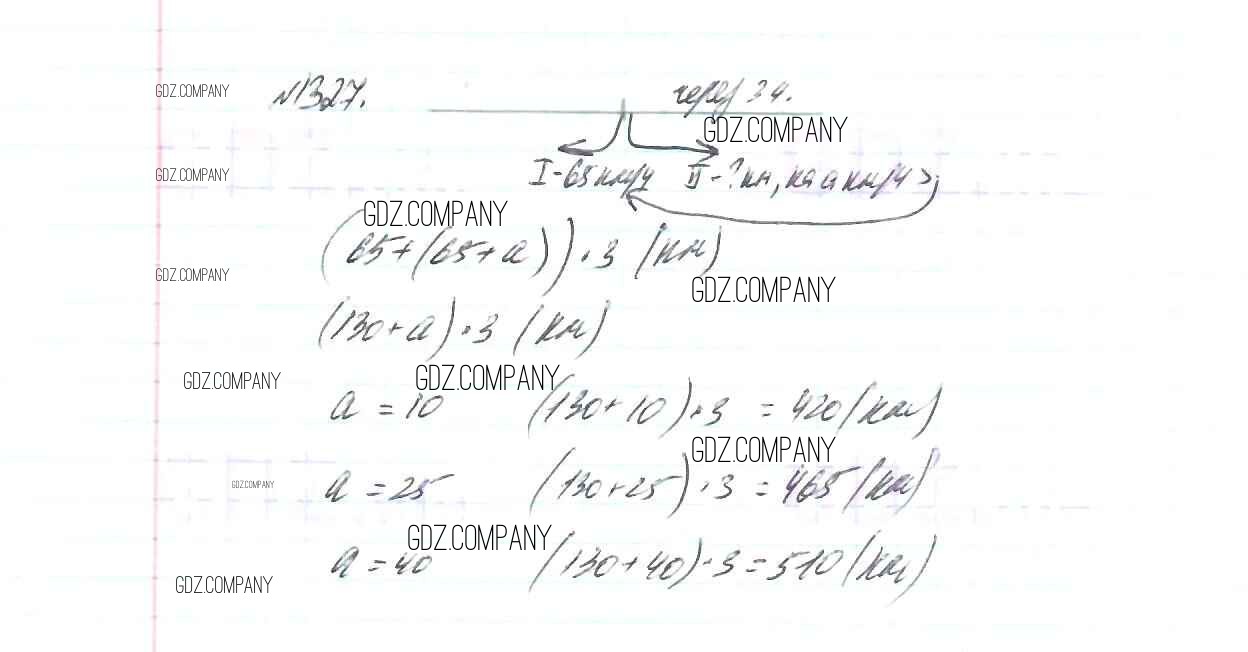 GDZ.COMPANY
№1327. через 3 ч.
GDZ.COMPANY
GDZ.COMPANY
I - 65 км/ч II - ? км, на а км/ч >
GDZ.COMPANY
(65+(65+a))·3 (км)
GDZ.COMPANY
GDZ.COMPANY
(130+a)·3 (км)
GDZ.COMPANY
GDZ.COMPANY
a = 10 (130+10)·3 = 420 (км)
GDZ.COMPANY
GDZ.COMPANY
a = 25 (130+25)·3 = 465 (км)
GDZ.COMPANY
a = 40 (130+40)·3 = 510 (км)
GDZ.COMPANY